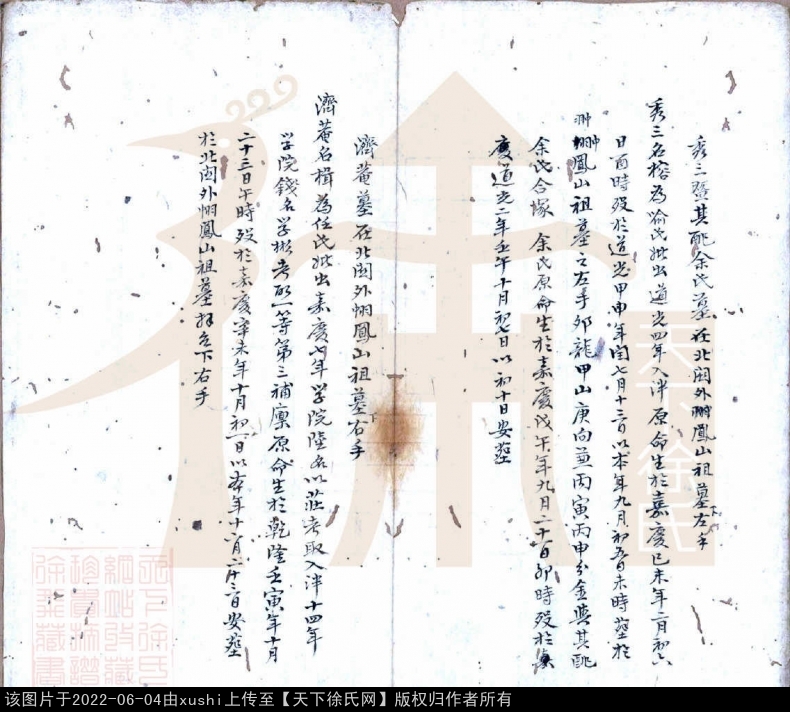 秀三暨其配余氏墓 在北関外翀鳳山祖墓下左手
秀三名榕為俞氏妣出道光四年入泮原命生於嘉慶己未年二月初六
日酉時殁於道光甲申年閏七月十三日以本年九月初五日未時塟於
翀鳳山祖墓之左手卯龍甲山庚向兼丙寅丙申分金與其配
余氏合塚 余氏原命生於嘉慶戊午年九月二十日卯時殁於
慶道光二年壬午十月初七日以初十日安塟
濟菴墓 在北関外翀鳳山祖墓下右手
濟菴名楫為任氏妣出嘉慶七年学院陸名以莊考取入泮十四年
学院錢名学彬考取一等第三補廩原命生於乾隆壬寅年十月
二十三日午時殁於嘉慶辛未年十月初一日以本年十一月二十三日安塟
於北関外翀鳳山祖墓拜台下右手
天下徐氏
该图片于2022-06-04由xushi上传至【天下徐氏网】版权归作者所有